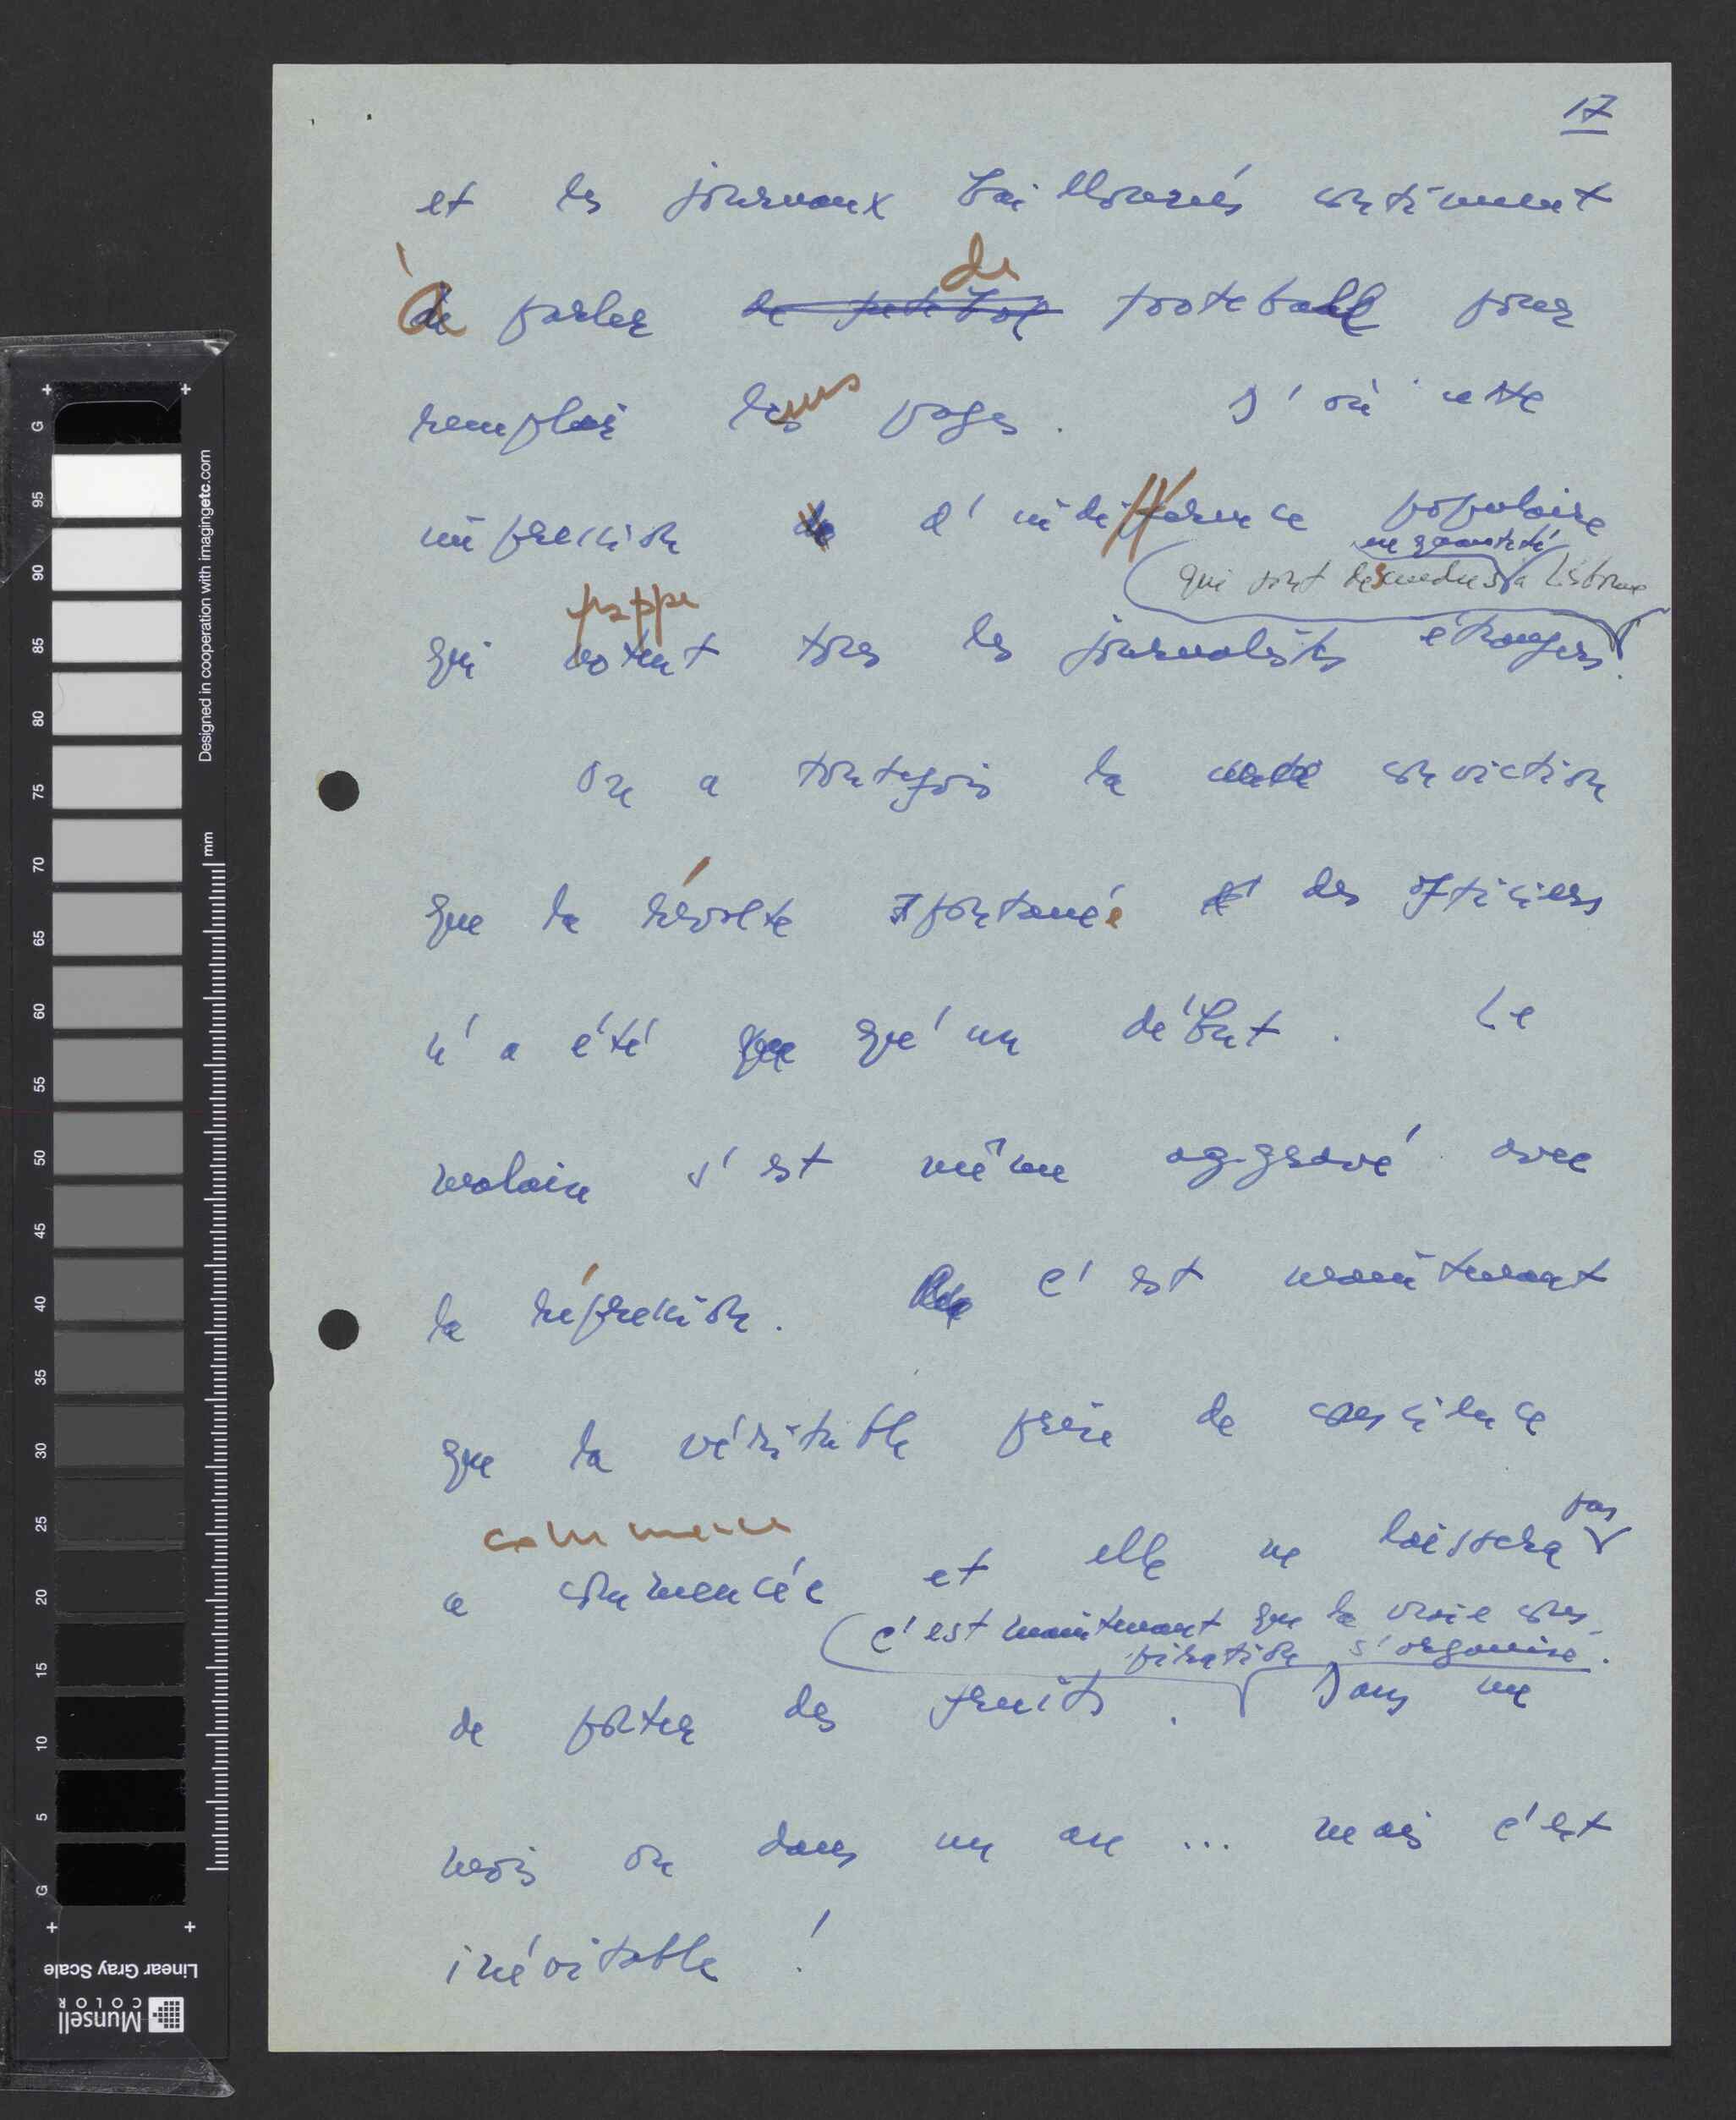 17
et les journaux baillonnés continuent
à parler de foot bol de footeball pour
remplir leurs pages. D'où cette
impression de d'indifférence populaire
en quantité
qui sont descendus à Lisbonne
frappe
qui notent tous les journalistes etrangers.
On a toutefois la conviction
que la révolte spontanée des officiers
n'a été que qu'un début. Le
malaise s'est même aggravé avec
la répression. C'est maintenant
que la véritable prise de conscience
commence
pas
a commencée et elle ne laissera
c'est maintenant que la vraie cons-
piration s'organise.
de porter des fruits. Dans un
mois ou dans un an ... mais c'est
inévitable !
G
95
90
85
80
75
70
65
60
55
50
45
40
35
30
25
20
15
10
5
G
mm
Designed in cooperation with imagingetc.com
Linear Gray Scale
Munsell
COLOR